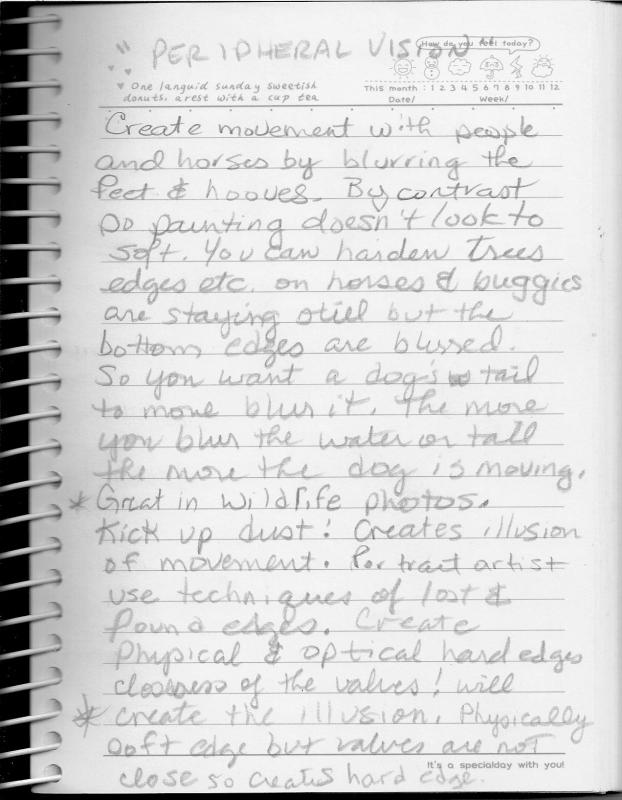 " PERIPHERAL VISION "
How do you feel today?
♥ One languid sunday sweetish
donuts. arest with a cup tea
This month : 1 2 3 4 5 6 7 8 9 10 11 12
Date/ Week/
Create movement with people
and horses by blurring the
feet & hooves. By contrast
so painting doesn't look to
soft. You can harden trees
edges etc. on horses & buggies
are staying still but the
bottom edges are blurred.
So you want a dog's tail
to move blur it. The more
you blur the water or tall
the more the dog is moving.
* Great in wildlife photos.
Kick up dust! Creates illusion
of movement. Portrait artist
use techniques of lost &
found edges. Create
Physical & optical hard edges
closeness of the values! will
* create the illusion. Physically
soft edge but values are not
close so creates hard edge.
It's a specialday with you!